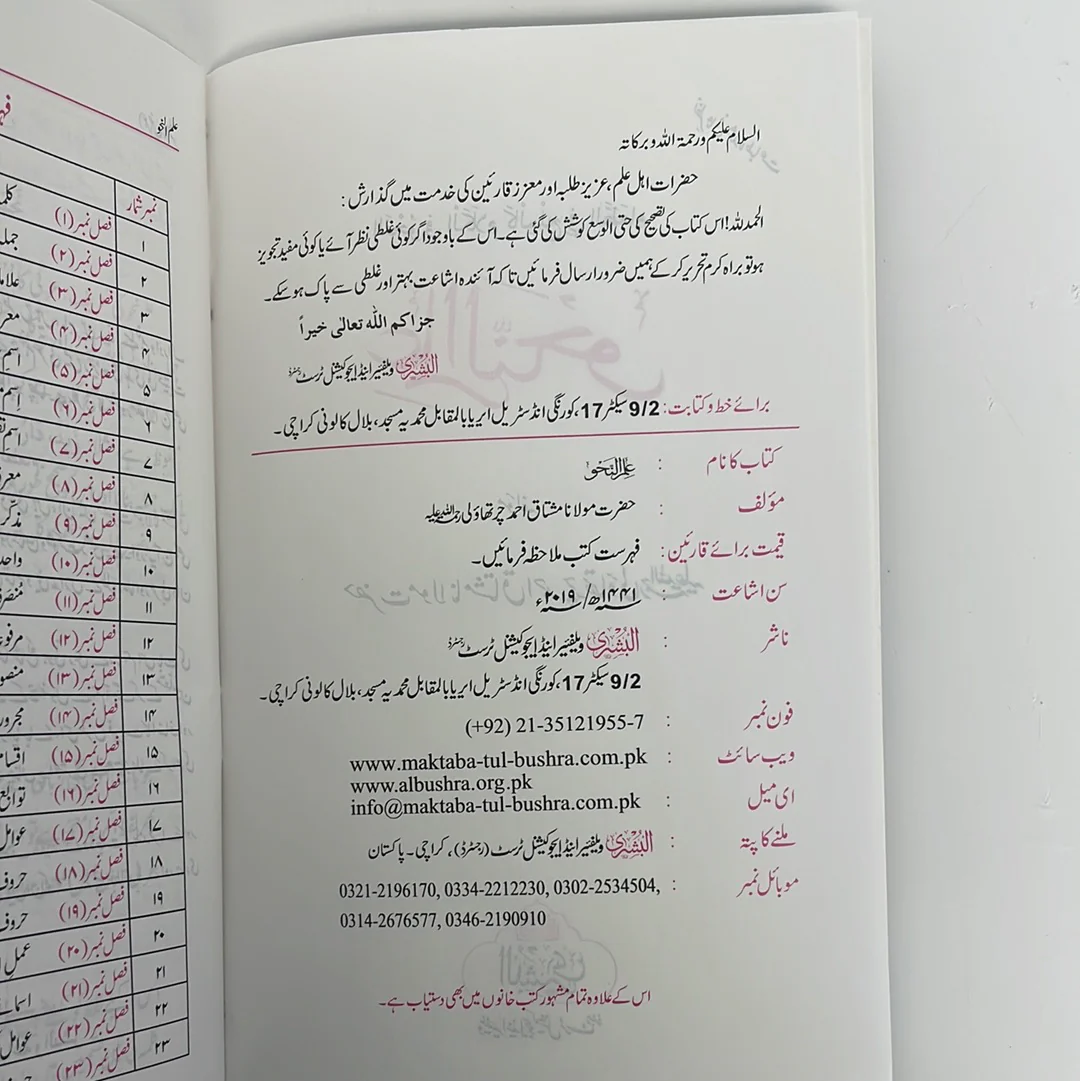 السلام علیکم ورحمۃ اللہ وبرکاتہ
حضرات اہل علم، عزیز طلبہ اور معزز قارئین کی خدمت میں گذارش:
الحمدللہ! اس کتاب کی تصحیح کی حتی الوسع کوشش کی گئی ہے۔ اس کے باوجود اگر کوئی غلطی نظر آئے یا کوئی مفید تجویز
ہو تو براہ کرم تحریر کر کے ہمیں ضرور ارسال فرمائیں تاکہ آئندہ اشاعت بہتر اور غلطی سے پاک ہو سکے۔
جزاکم اللہ تعالیٰ خیراً
البشریٰ ویلفیئر اینڈ ایجوکیشنل ٹرسٹ رجسٹرڈ
برائے خط وکتابت: 9/2 سیکٹر 17، کورنگی انڈسٹریل ایریا بالمقابل محمدیہ مسجد، بلال کالونی کراچی۔
کتاب کا نام : علم النحو
مؤلف : حضرت مولانا مشتاق احمد چرتھاؤلی رحمۃ اللہ علیہ
قیمت برائے قارئین: فہرست کتب ملاحظہ فرمائیں۔
سن اشاعت : ۱۴۴۱ھ/ ۲۰۱۹ء
ناشر : البشریٰ ویلفیئر اینڈ ایجوکیشنل ٹرسٹ رجسٹرڈ
9/2 سیکٹر 17، کورنگی انڈسٹریل ایریا بالمقابل محمدیہ مسجد، بلال کالونی کراچی۔
فون نمبر : (+92) 21-35121955-7
ویب سائٹ : www.maktaba-tul-bushra.com.pk
www.albushra.org.pk
ای میل : info@maktaba-tul-bushra.com.pk
ملنے کا پتہ : البشریٰ ویلفیئر اینڈ ایجوکیشنل ٹرسٹ (رجسٹرڈ)، کراچی۔ پاکستان
موبائل نمبر : 0321-2196170, 0334-2212230, 0302-2534504,
0314-2676577, 0346-2190910
اس کے علاوہ تمام مشہور کتب خانوں میں بھی دستیاب ہے۔
علم النحو
نمبر شمار
۱ فصل نمبر (۱)
۲ فصل نمبر (۲)
۳ فصل نمبر (۳)
۴ فصل نمبر (۴)
۵ فصل نمبر (۵)
۶ فصل نمبر (۶)
۷ فصل نمبر (۷)
۸ فصل نمبر (۸)
۹ فصل نمبر (۹)
۱۰ فصل نمبر (۱۰)
۱۱ فصل نمبر (۱۱)
۱۲ فصل نمبر (۱۲)
۱۳ فصل نمبر (۱۳)
۱۴ فصل نمبر (۱۴)
۱۵ فصل نمبر (۱۵)
۱۶ فصل نمبر (۱۶) توابع
۱۷ فصل نمبر (۱۷) عوامل
۱۸ فصل نمبر (۱۸) حروف
۱۹ فصل نمبر (۱۹) حروف
۲۰ فصل نمبر (۲۰) عمل
۲۱ فصل نمبر (۲۱)
۲۲ فصل نمبر (۲۲) عوامل
۲۳ فصل نمبر (۲۳)